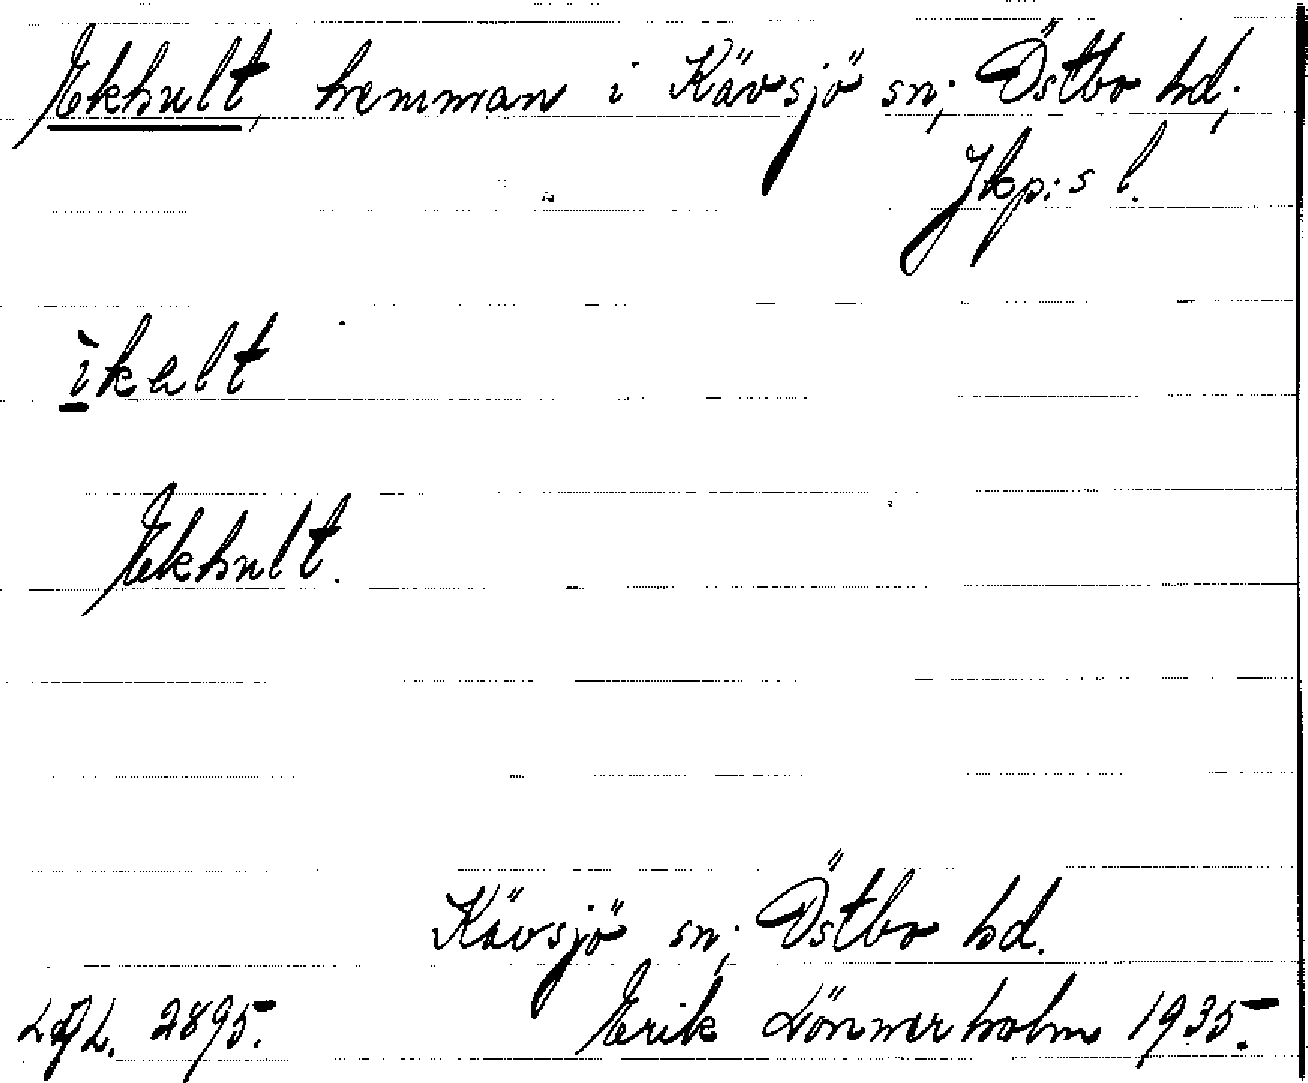 Ekhult, hemman i Kävsjö sn; Östbo hd;
Jkp:s l.
ìkalt
Ekhult.
Kävsjö sn; Östbo hd.
Lgh. 2895. Erik Lönnerholm 1935.